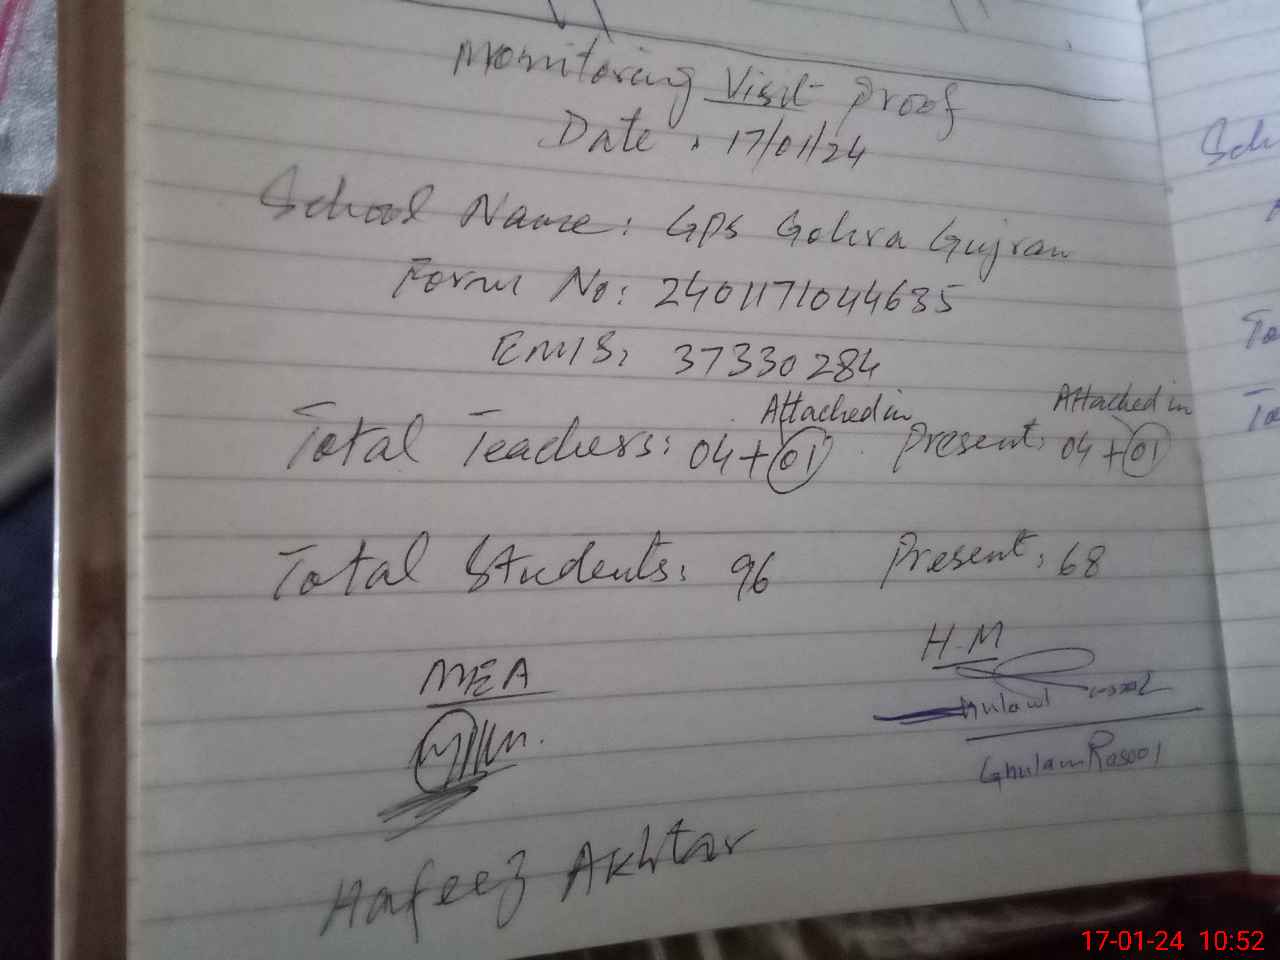 Monitoring Visit Proof
Date: 17/01/24
School Name: GPS Gohra Gujran
Form No: 2401171044635
EMIS: 37330284
Attached in Attached in
Total Teachers: 04+01 Present: 04+01
Total Students: 96 Present: 68
MEA H.M
Ghulam Rasool
Hafeez Akhtar
Sch
To
To
17-01-24 10:52